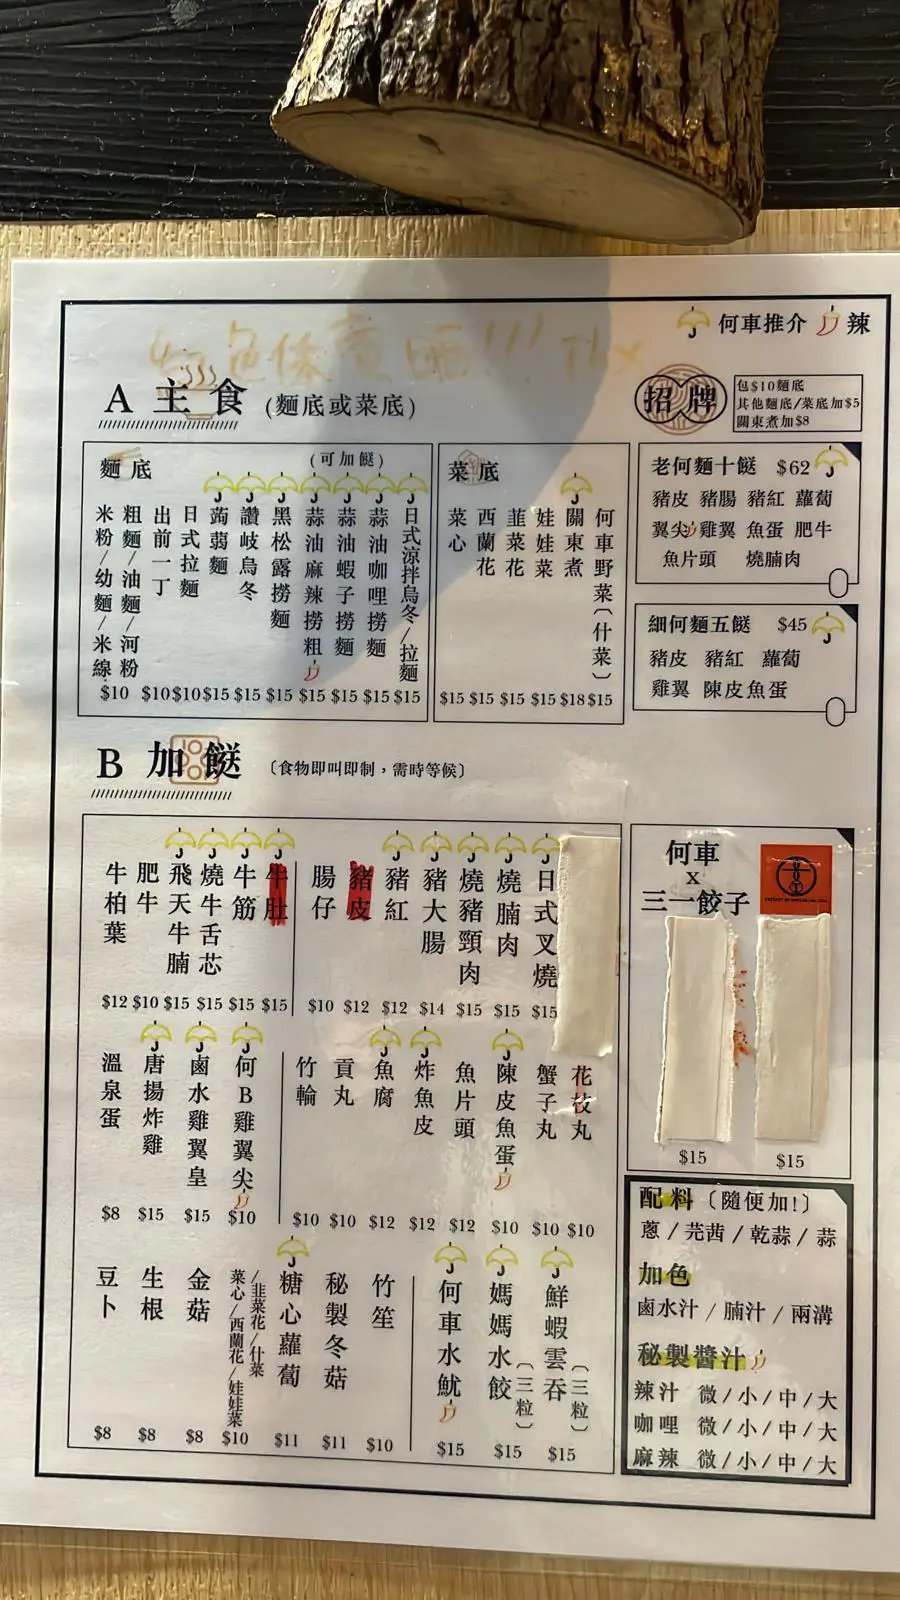 何車推介 辣
A 主食 (麵底或菜底)
招牌
包$10麵底
其他麵底/菜底加$5
關東煮加$8
麵底
(可加餸)
米粉/幼麵/米線
粗麵/油麵/河粉
$10
出前一丁
$10
日式拉麵
$10
蒟蒻麵
$15
讚岐烏冬
$15
黑松露撈麵
$15
蒜油麻辣撈粗
$15
蒜油蝦子撈麵
$15
蒜油咖哩撈麵
$15
日式涼拌烏冬/拉麵
$15
菜底
菜心
$15
西蘭花
$15
韭菜花
$15
娃娃菜
$15
關東煮
$18
何車野菜〔什菜〕
$15
老何麵十餸 $62
豬皮 豬腸 豬紅 蘿蔔
翼尖 雞翼 魚蛋 肥牛
魚片頭 燒腩肉
細何麵五餸 $45
豬皮 豬紅 蘿蔔
雞翼 陳皮魚蛋
B 加餸 〔食物即叫即制,需時等候〕
牛柏葉
$12
肥牛
$10
飛天牛腩
$15
燒牛舌芯
$15
牛筋
$15
牛肚
$15
腸仔
$10
豬皮
$12
豬紅
$12
豬大腸
$14
燒豬頸肉
$15
燒腩肉
$15
日式叉燒
$15
溫泉蛋
$8
唐揚炸雞
$15
鹵水雞翼皇
$15
何B雞翼尖
$10
竹輪
$10
貢丸
$10
魚腐
$12
炸魚皮
$12
魚片頭
$12
陳皮魚蛋
$10
蟹子丸
$10
花枝丸
$10
豆卜
$8
生根
$8
金菇
$8
菜心/西蘭花/娃娃菜
/韭菜花/什菜
$10
糖心蘿蔔
$11
秘製冬菇
$11
竹笙
$10
何車水魷
$15
媽媽水餃〔三粒〕
$15
鮮蝦雲吞〔三粒〕
$15
何車
x
三一餃子
$15 $15
配料〔隨便加!〕
蔥 / 芫茜 / 乾蒜 / 蒜
加色
鹵水汁 / 腩汁 / 兩溝
秘製醬汁
辣汁 微/小/中/大
咖哩 微/小/中/大
麻辣 微/小/中/大